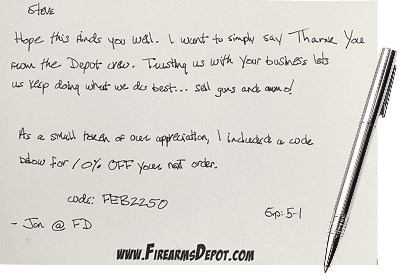 Steve
Hope this finds you well. I want to simply say Thank You
from the Depot crew. Trusting us with your business lets
us keep doing what we do best... sell guns and ammo!
As a small token of our appreciation, I included a code
below for 10% OFF your next order.
code: FEB2250
Exp: 5-1
- Jon @ FD
www.FirearmsDepot.com